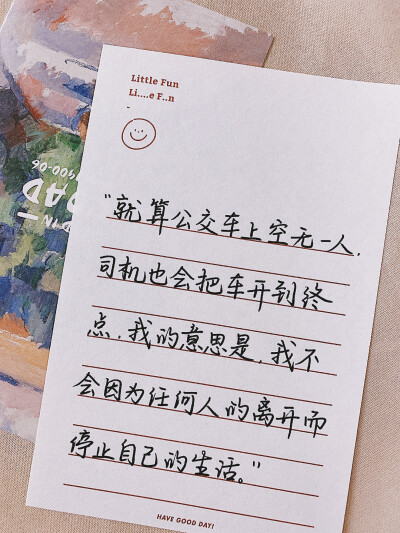 Little Fun
Li....e F..n
"就算公交车上空无一人,
司机也会把车开到终
点,我的意思是,我不
会因为任何人的离开而
停止自己的生活。"
HAVE GOOD DAY!